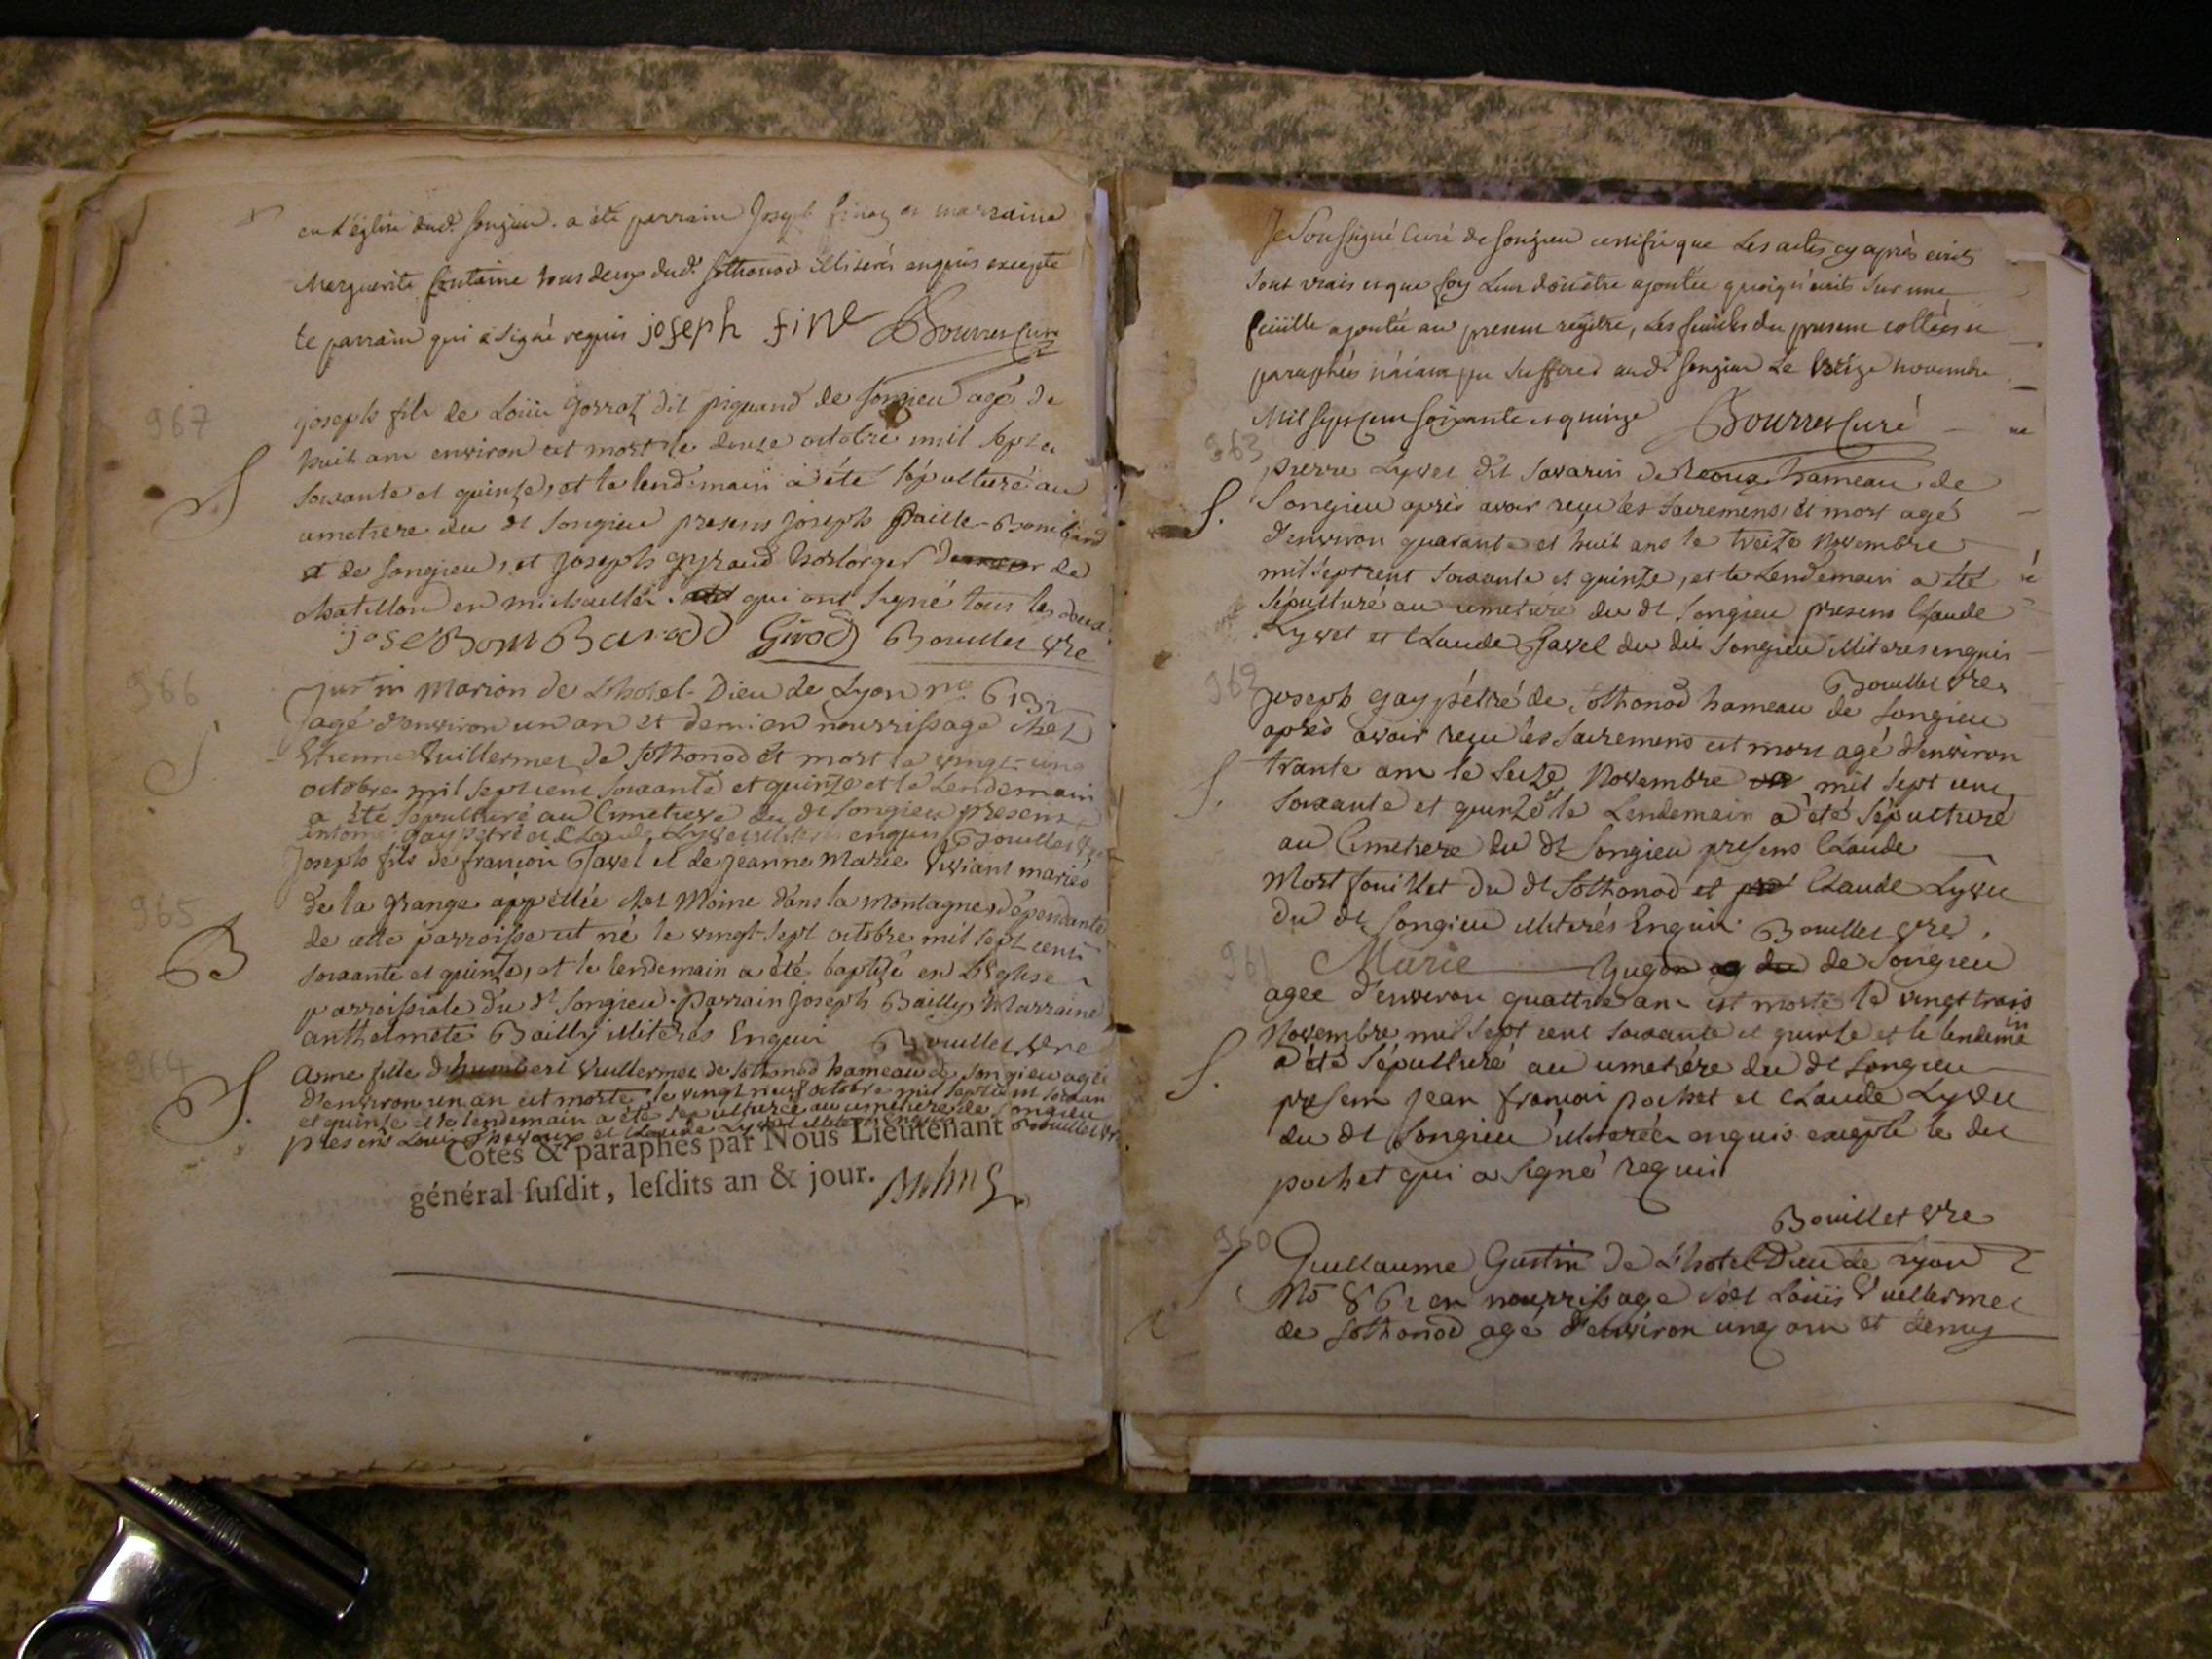 en L'églisë dud.t songieu. a été parrain Joseph finaz et marraine
Marguerite fontaine tous deux dud.t sothonod illiterés enquis excepté
le parrain qui a signé requis joseph fine Bourret Curé
967
joseph fils de Loüis Gorrat dit piquand de songieu agé de
huit ans environ est mort le douze octobre mil sept ct
soixante et quinze, et le lendemain a été sépulturé au
S
cimetiere du dt songieu presens joseph paille-Bombard
de songieu, et joseph gyraud horloger de
chatillon en michaille. qui ont signé tous les deux.
jose Bom Barod Girod Bouillet vre
966
justin Marion de L'hotel-Dieu de Lyon no 6132
agé d'environ un an et demi en nourrissage chez
S
Etienne Vuillermet de sothonod est mort le vingt-un
octobre mil sept cent soixante et quinze et le Lendemain
a été sépulturé au Cimetiere du dt songieu presens
antome gay pétré et Claude Lyvet illiteres enquis Bouillet vre
Joseph fils de françois Javel et de jeanne Marie Viviant mariés
965
de la grange appellée chez Moine dans la montagne, dépendante
B
de cette parroisse est né le vingt-sept octobre mil sept cent
soixante et quinze, et le lendemain a été baptisé en L'Eglise
parroissiale du dt songieu. parrain joseph Bailly Marraine
anthelmete Bailly illiterés Enquis Bouillet vre
964
S.
Anne fille d'humbert Vuillermet de sothonod hameau de songieu agée
d'environ un an est morte le vingt neuf octobre mil sept cent soixan
et quinze et le lendemain a été sepulturée au cimetiere de songieu
presens Louis et Claude Lyvet illiterés Enquis Bouillet vre
Cotés & paraphés par Nous Lieutenant
général susdit, lesdits an & jour.
Je soussigné Curé de songieu certifie que Les actes cy après ecrits
sont vrais et que foy Leur doit être ajoutée quoiqu'écrits sur une
feüille ajoutée au present regitre, Les feuilles du present cottées et
paraphés n'aiant pu suffire. aud.t songieu Le treize novembre
Mil sept cent soixante et quinze Bourret Curé
963
pierre Lyvet dit savarin de hameau de
S.
Songieu après avoir reçu les sacremens est mort agé
d'environ quarante et huit ans le treize Novembre
mil sept cent soixante et quinze, et le Lendemain a été
sépulturé au cimetiére du dt songieu presens Claude
Lyvet et Claude Javel du dit songieu illiteres enquis
Bouillet vre
962
Joseph gay pétré de sothonod hameau de songieu
après avoir reçu les sacremens est mort agé d'environ
S.
trante ans le seize Novembre mil sept cent
soixante et quinze et le Lendemain a été sépulturé
au Cimetiere du dt songieu presens Claude
Mort fouillet du dt sothonod et Claude Lyvet
du dt songieu illiterés Enquis Bouillet vre.
961
Marie Hugon de Songieu
agée d'environ quattre ans est morte le vingt trois
Novembre mil sept cent soixante et quinze et le lendemain
S.
a été sépulturé au cimetiére du dt songieu
presens jean francois pochet et Claude Lyvet
du dt songieu illiterés enquis excepté le dit
pochet qui a signé requis
Bouillet vre
960
S
Guillaume Gustin de L'hotel Dieu de Lyon
No 861 en nourrissage chez Loüis Vuillermet
de sothonod agé d'environ un an et demy